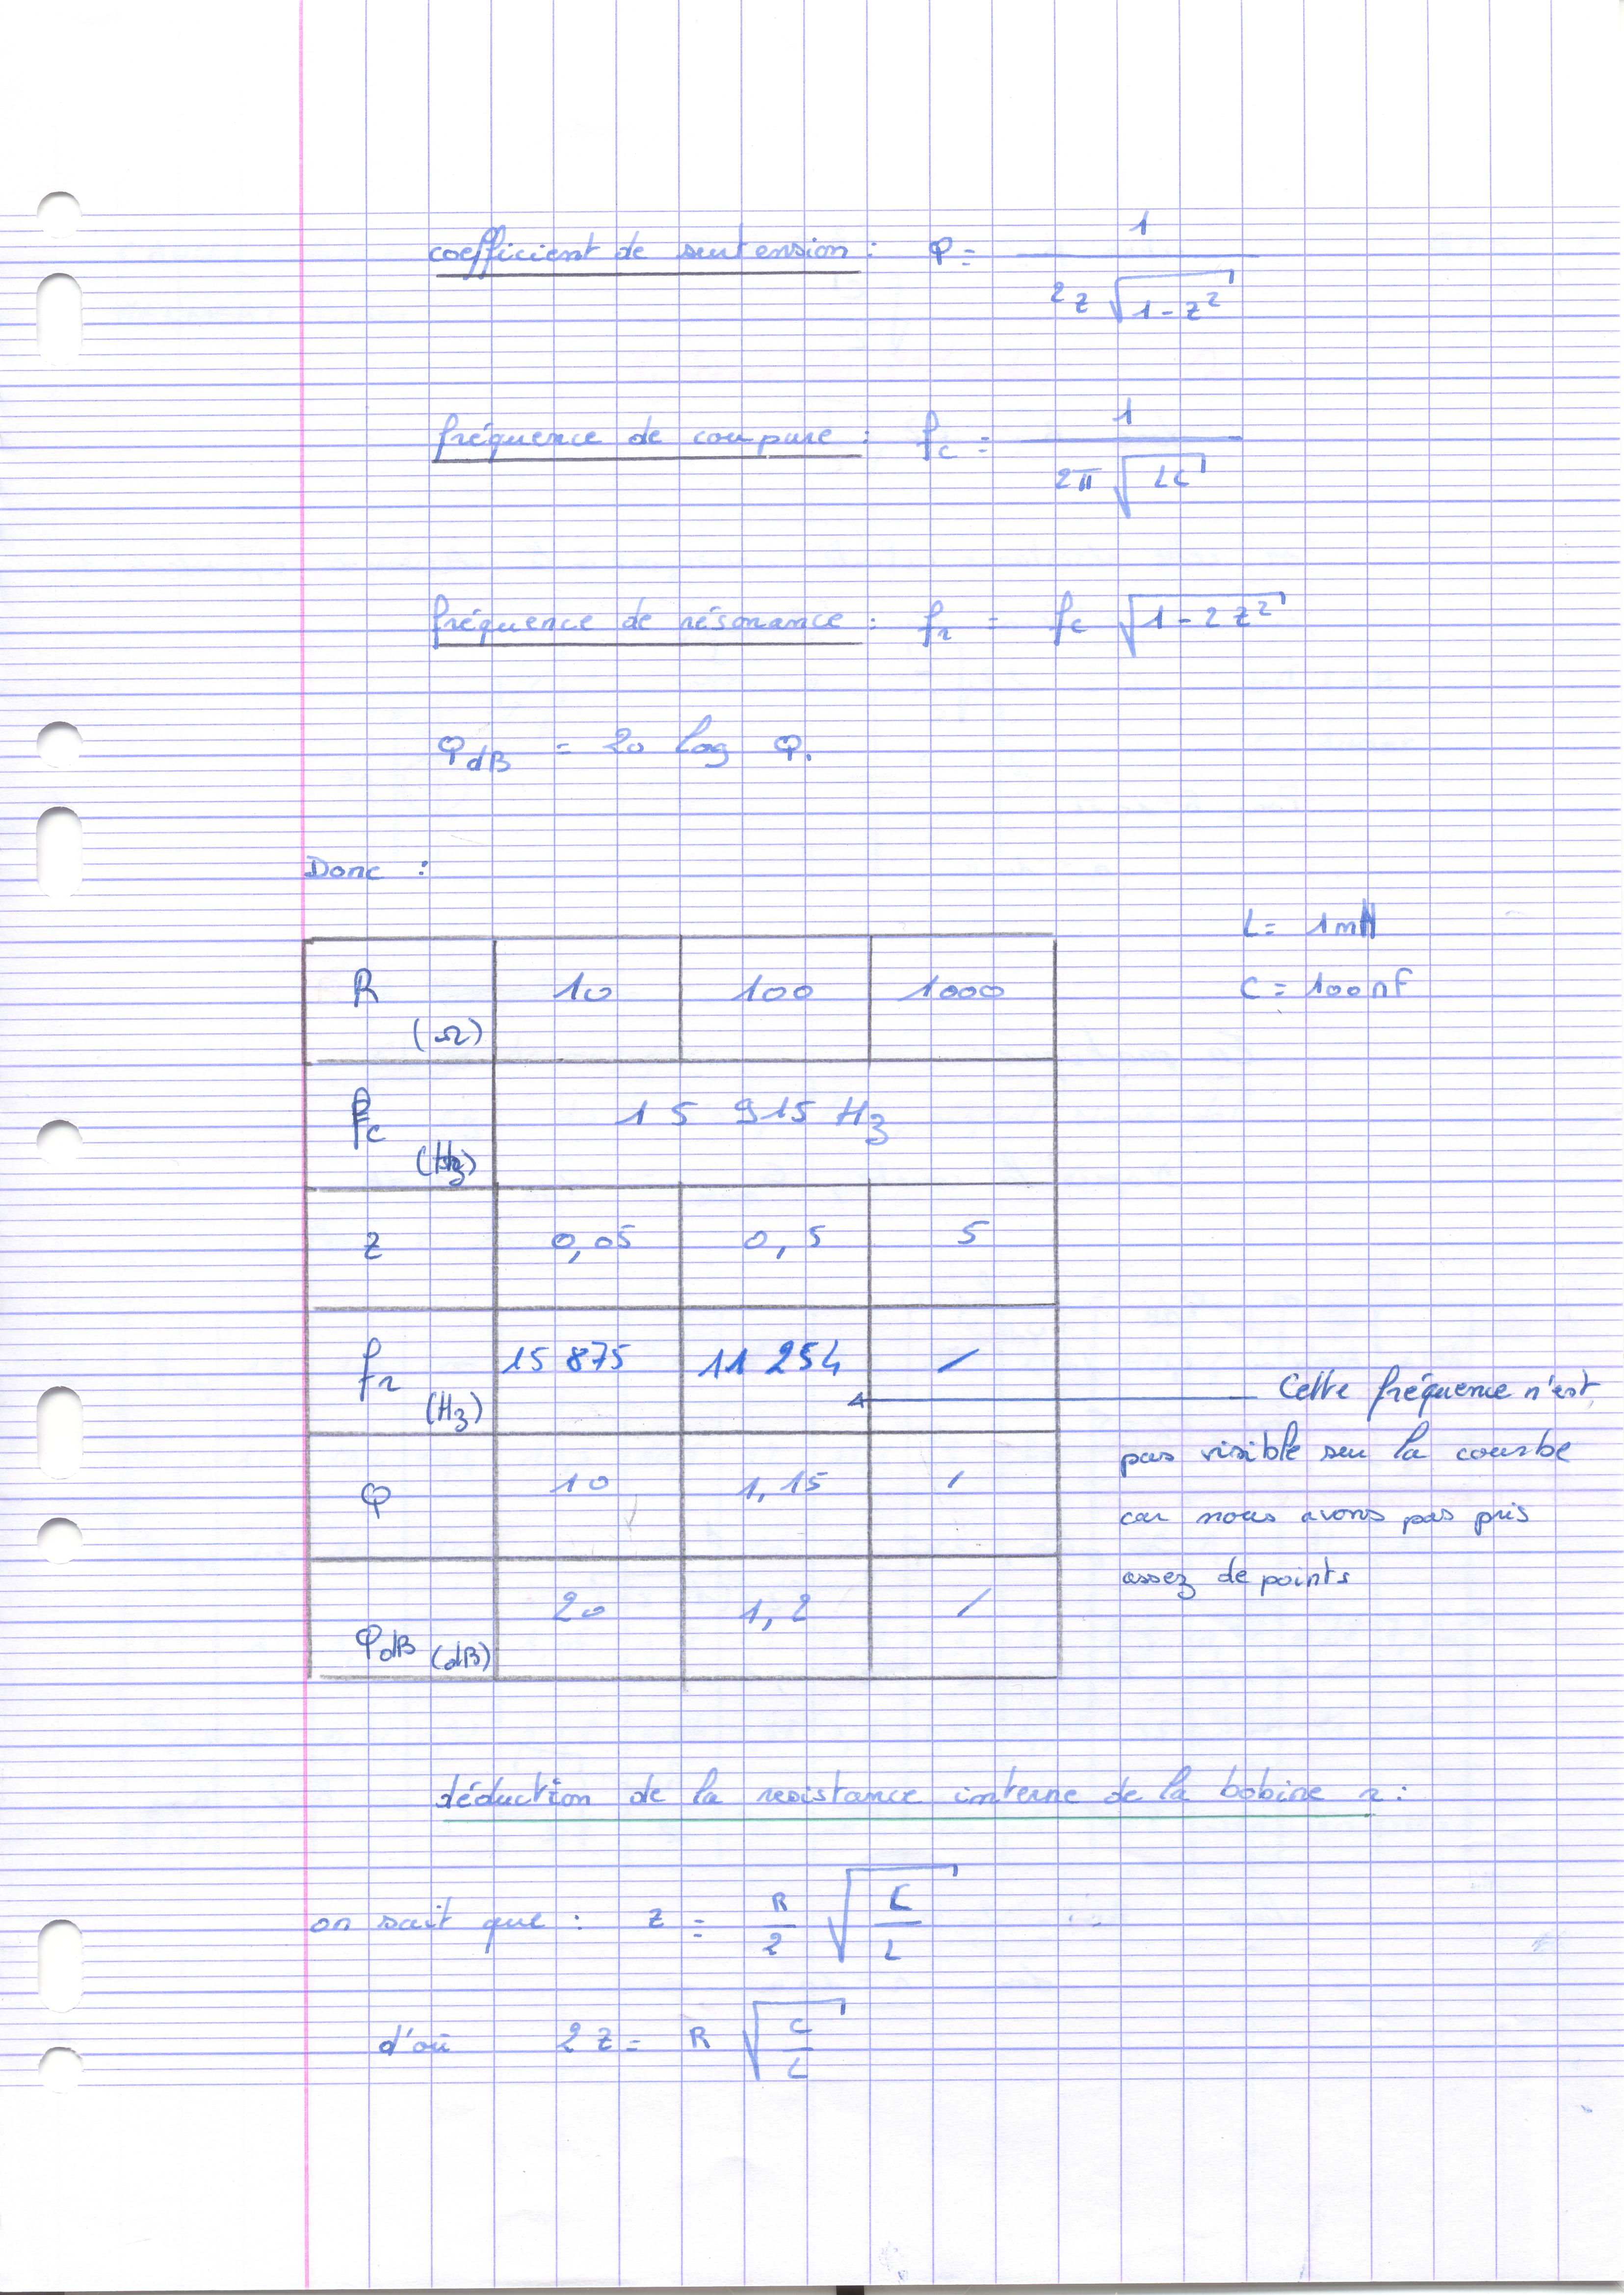 coefficient de surtension : φ = 1 / (2z √(1 - z²))
fréquence de coupure : fc = 1 / (2π √(LC))
fréquence de résonance : fr = fc √(1 - 2z²)
φdB = 20 log φ.
Donc :
L = 1mH
C = 100nF
R (Ω) 10 100 1000
fc (Hz) 15 915 Hz
z 0,05 0,5 5
fr (Hz) 15 875 11 254 /
Cette fréquence n'est
pas visible sur la courbe
car nous avons pas pris
assez de points
φ 10 1,15 /
φdB (dB) 20 1,2 /
déduction de la resistance interne de la bobine r :
on sait que : z = R/2 √(C/L)
d'où 2z = R √(C/L)